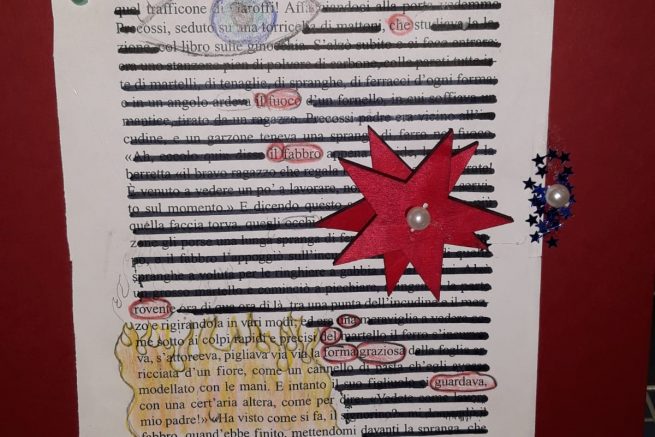 quel trafficone di Garoffi! Affacciandoci alla porta vedemmo
Precossi, seduto su una torricella di mattoni, che studiava la le-
zione, col libro sulle ginocchia. S'alzò subito e ci fece entrare:
era uno stanzone pien di polvere di carbone, colle pareti tutte ir-
te di martelli, di tenaglie, di spranghe, di ferracci d'ogni forma;
e in un angolo ardeva il fuoco d'un fornello, in cui soffia
mantice, tirato da un ragazzo. Precossi padre era vicino all'in-
cudine, e un garzone teneva una spranga di ferro nel fuoco.
«Ah, eccolo qui» disse il fabbro appena
berretta «il bravo ragazzo che regala
È venuto a vedere un po' a lavorare, no
to sul momento.» E dicendo questo
quella faccia torva, quegli occhi
zone gli porse una lunga spranga di
po, e il fabbro l'appoggiò sull'in
spranghe a voluta per le ringhiere a gabbia
un grosso martello e cominciò a picchiare, spingendo la parte
rovente ora di qua ora di là, tra una punta dell'incudine e il mez-
zo e rigirandola in vari modi, ed era una maraviglia a vedere co-
me sotto ai colpi rapidi e precisi del martello il ferro s'incur-
va, s'attorceva, pigliava via via la forma graziosa della foglia ar-
ricciata d'un fiore, come un cannello di pasta ch'egli avesse
modellato con le mani. E intanto il suo figliuolo ci guardava,
con una cert'aria altera, come per dire: «Vedete come lavora
mio padre!» «Ha visto come si fa, il signorino?» mi domandò il
fabbro, quand'ebbe finito, mettendomi davanti la spranga, che